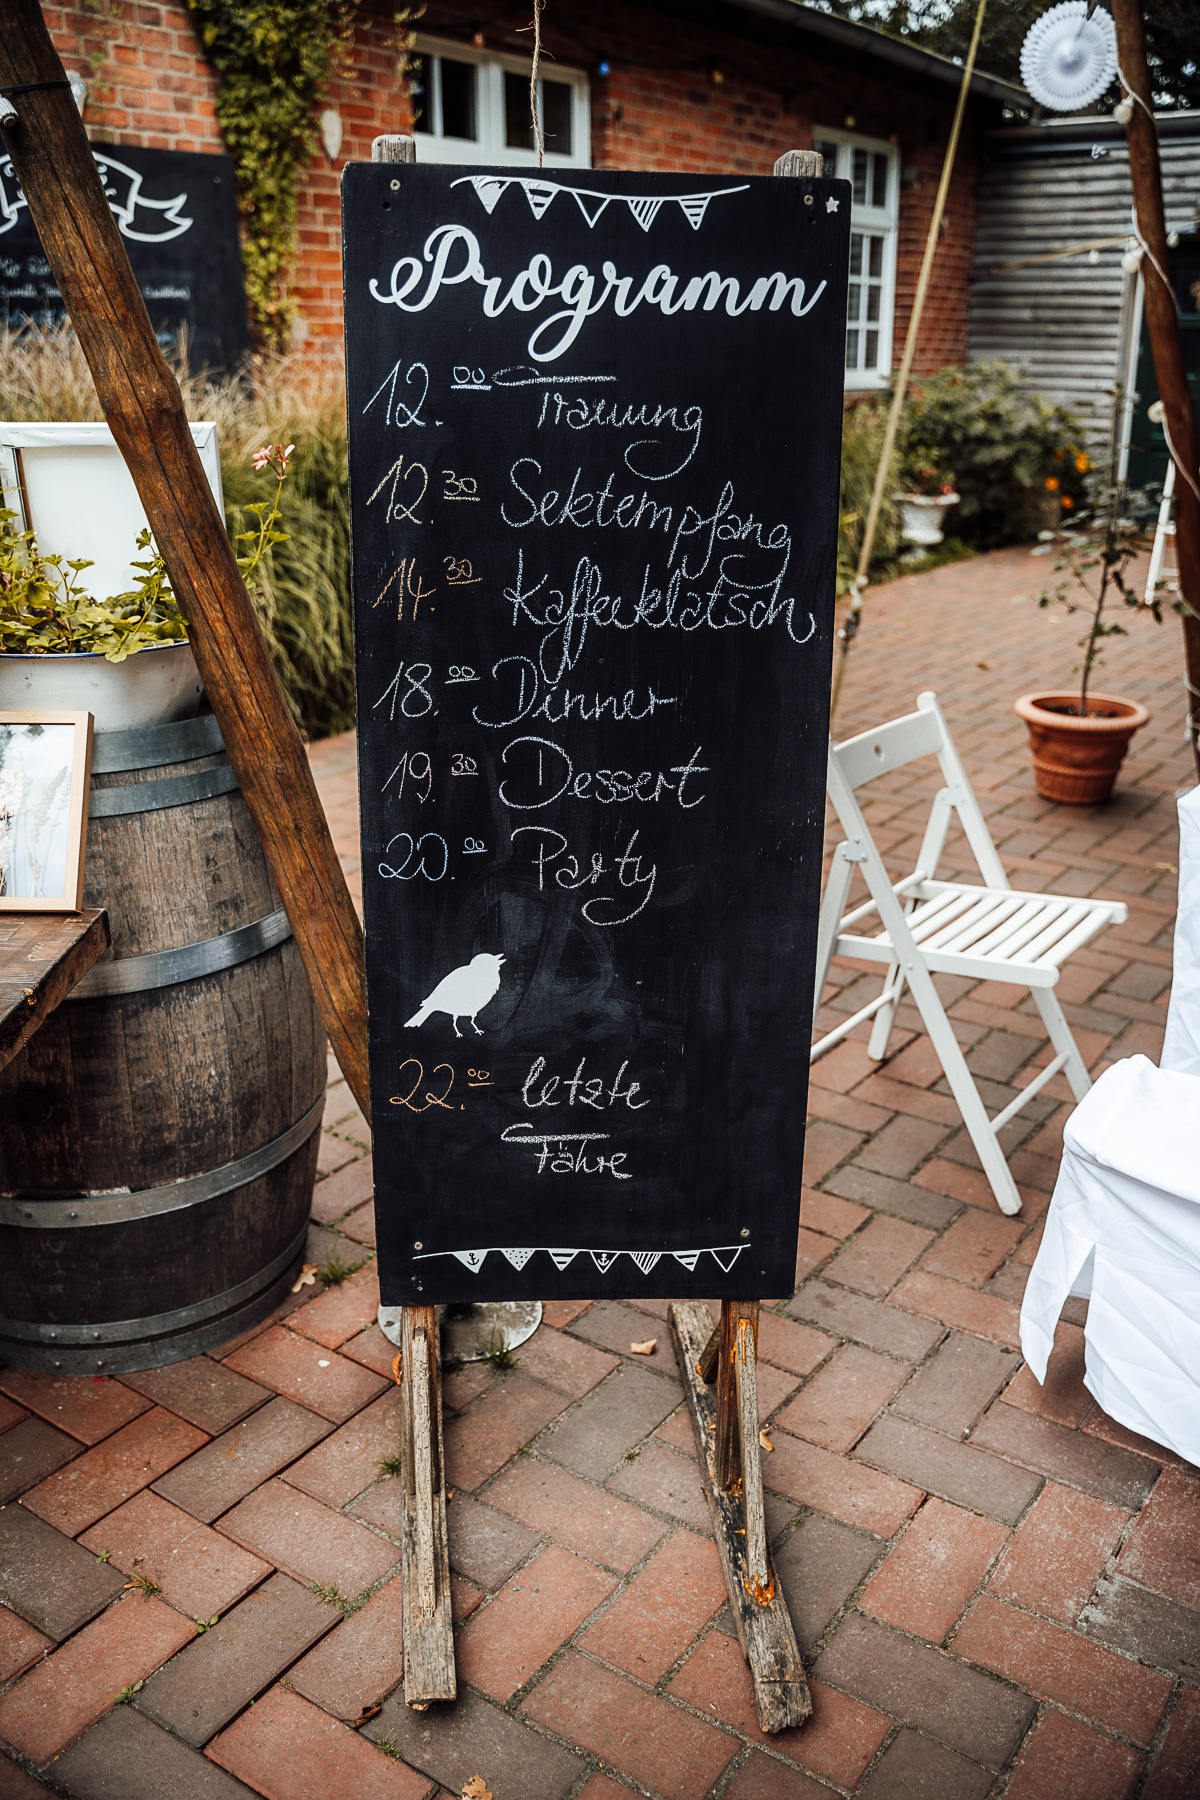 Programm
12.00 Trauung
12.30 Sektempfang
14.30 Kaffeeklatsch
18.00 Dinner
19.30 Dessert
20.00 Party
22.00 letzte
Fähre